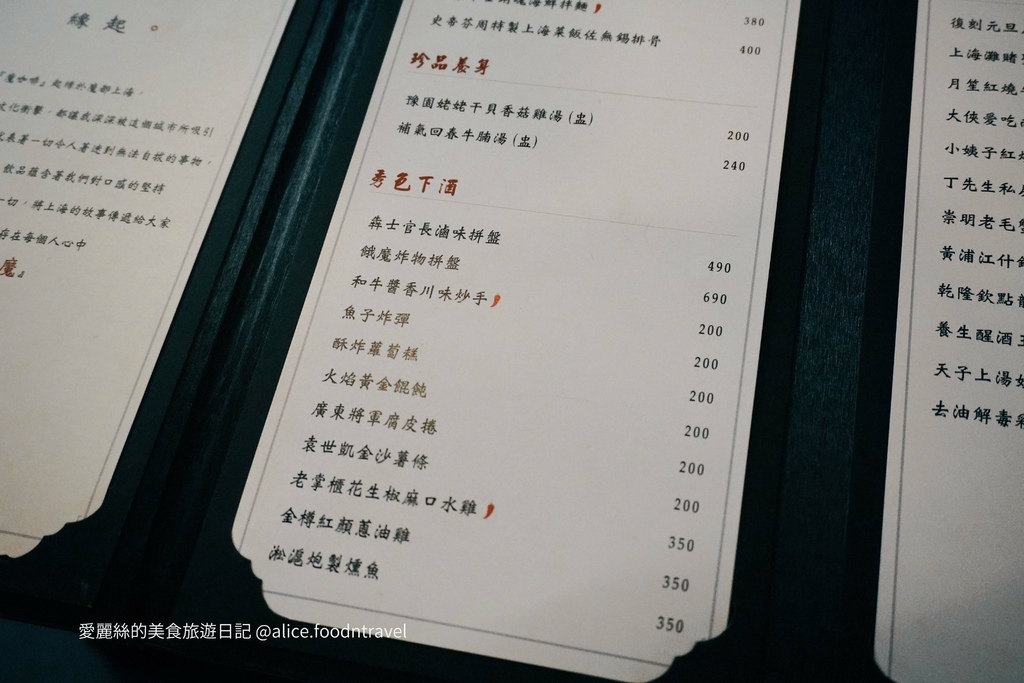 緣起。
『魔咖啡』起緣於魔都上海，
文化衝擊，都讓我深深被這個城市所吸引
代表著一切令人著迷到無法自拔的事物，
飲品蘊含著我們對口感的堅持
一切，將上海的故事傳遞給大家
存在每個人心中
魔』
海鮮拌麵 380
史蒂芬周特製上海菜飯佐無錫排骨 400
珍品養身
豫園姥姥干貝香菇雞湯(盅) 200
補氣回春牛腩湯(盅) 240
秀色下酒
犇士官長滷味拼盤 490
餓魔炸物拼盤 690
和牛醬香川味炒手 200
魚子炸彈 200
酥炸蘿蔔糕 200
火焰黃金餛飩 200
廣東將軍腐皮捲 200
袁世凱金沙薯條 200
老掌櫃花生椒麻口水雞 350
金樽紅顏蔥油雞 350
淞滬炮製燻魚 350
復刻元旦
上海灘賭
月笙紅燒
大俠愛吃
小姨子紅
丁先生私
崇明老毛
黃浦江什
乾隆欽點
養生醒酒
天子上湯
去油解毒
愛麗絲的美食旅遊日記 @alice.foodntravel